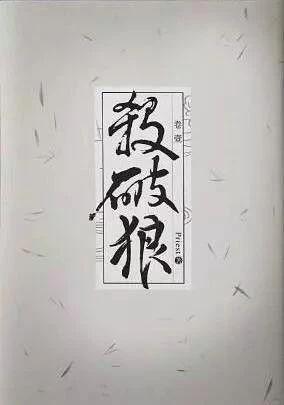 卷壹
殺破狼
Priest 著